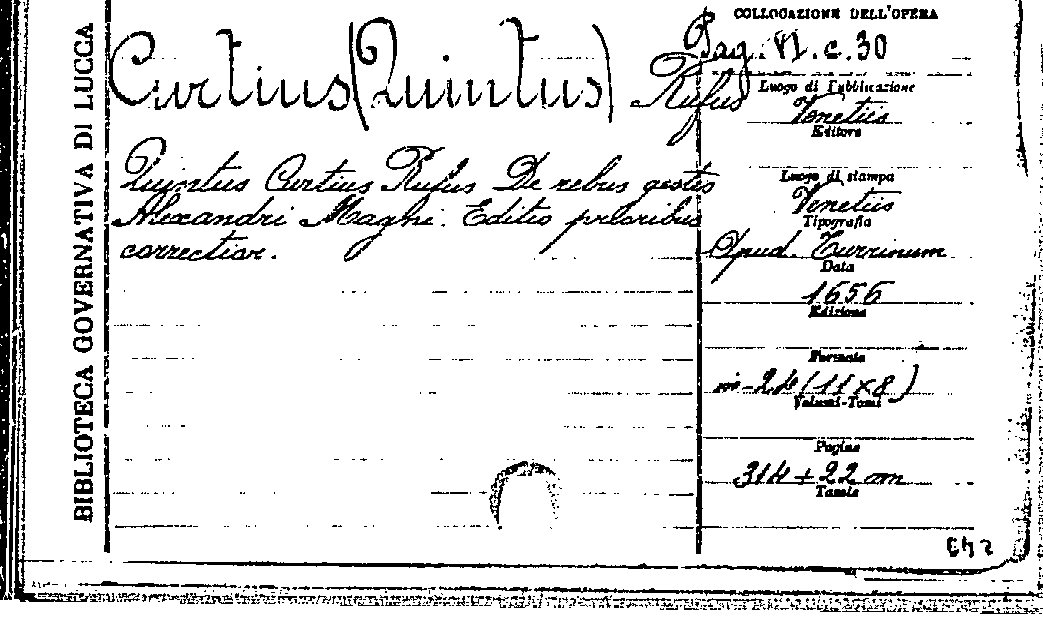 BIBLIOTECA GOVERNATIVA DI LUCCA
Curtius (Quintus) Rufus
Quintus Curtius Rufus De rebus gestis
Alexandri Maghi. Editio prioribus
correctior.
COLLOCAZIONE DELL'OPERA
Pag. VI. c. 30
Luogo di Pubblicazione
Venetiis
Editore
Luogo di stampa
Venetiis
Tipografia
Apud. Turrinum
Data
1656
Edizione
Formato
in-24 (11x8)
Volumi-Tomi
Pagine
314 + 22 nn
Tavole